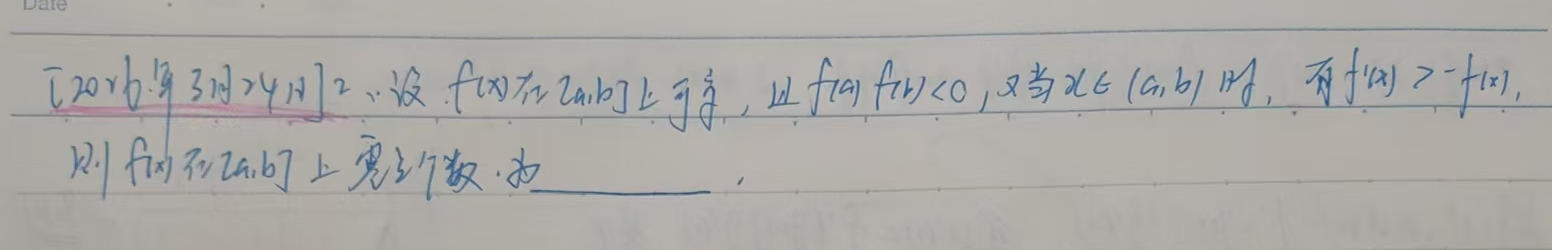 Date
[2026年3月24日]2、设 f(x)在[a,b]上可导,且f(a)f(b)<0,又当x∈(a,b)时,有f'(x)>-f(x),
则f(x)在[a,b]上零点个数.为______.